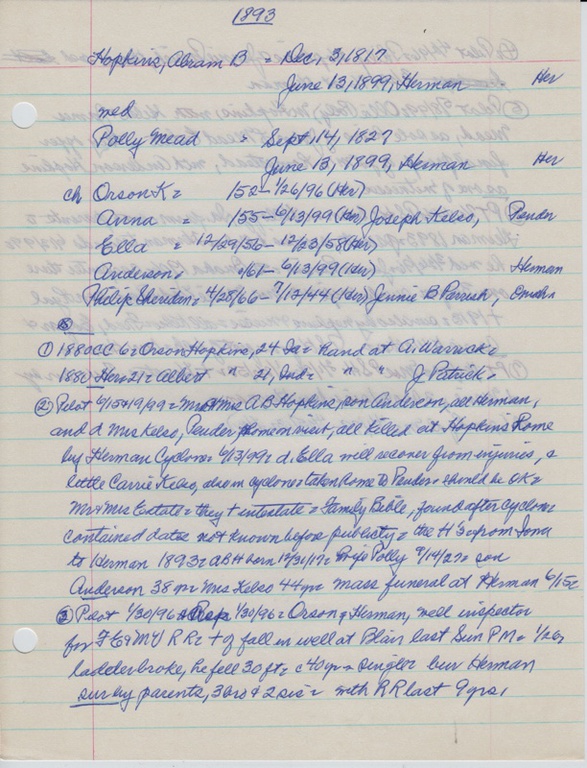 1893
Hopkins, Abram B = Dec, 3, 1817
June 13, 1899, Herman Her
med
Polly Mead = Sept, 14, 1827
June 13, 1899, Herman Her
ch Orson K = '52 - 1/26/96 (Her)
Anna = '55 - 6/13/99 (Her) Joseph Kelso, Pender
Ella = 12/29/56 - 12/23/58 (Her)
Anderson, 4/61 - 6/13/99 (Her) Herman
Philip Sheridan = 4/28/66 - 7/13/44 (Her) Jennie B Parrish, Omaha
① 1880 CC 6 = Orson Hopkins, 24 Ia = hand at A. Warrick =
1880 Her 21 = Albert " 21, Ind = " " J Patrick =
② Pilot 6/15&19/99 = Mr & Mrs A B Hopkins, son Anderson, all Herman,
and d Mrs Kelso, Pender home on visit, all killed at Hopkins Home
by Herman Cyclone = 6/13/99 = d. Ella will recover from injuries, &
little Carrie Kelso, also in cyclone = taken home to Pender = should be OK =
Mr & Mrs Estate = they + intestate = Family Bible, found after cyclone
contained dates not known before publicly = the H's from Iowa
to Herman 1893 = ABH born 12/31/17 = Wife Polly 9/14/27 = son
Anderson 38 yr = Mrs Kelso 44 yr = mass funeral at Herman 6/15 =
③ Pilot 1/30/96 + 1/30/96 = Orson, Herman, well inspector
for F E & MV RR = + of fall in well at Blair last Sun PM = 1/26 =
ladder broke, he fell 30 ft = c 40 yr = single = bur Herman
surv by parents, 3 bro & 2 sis = with RR last 9 yrs,